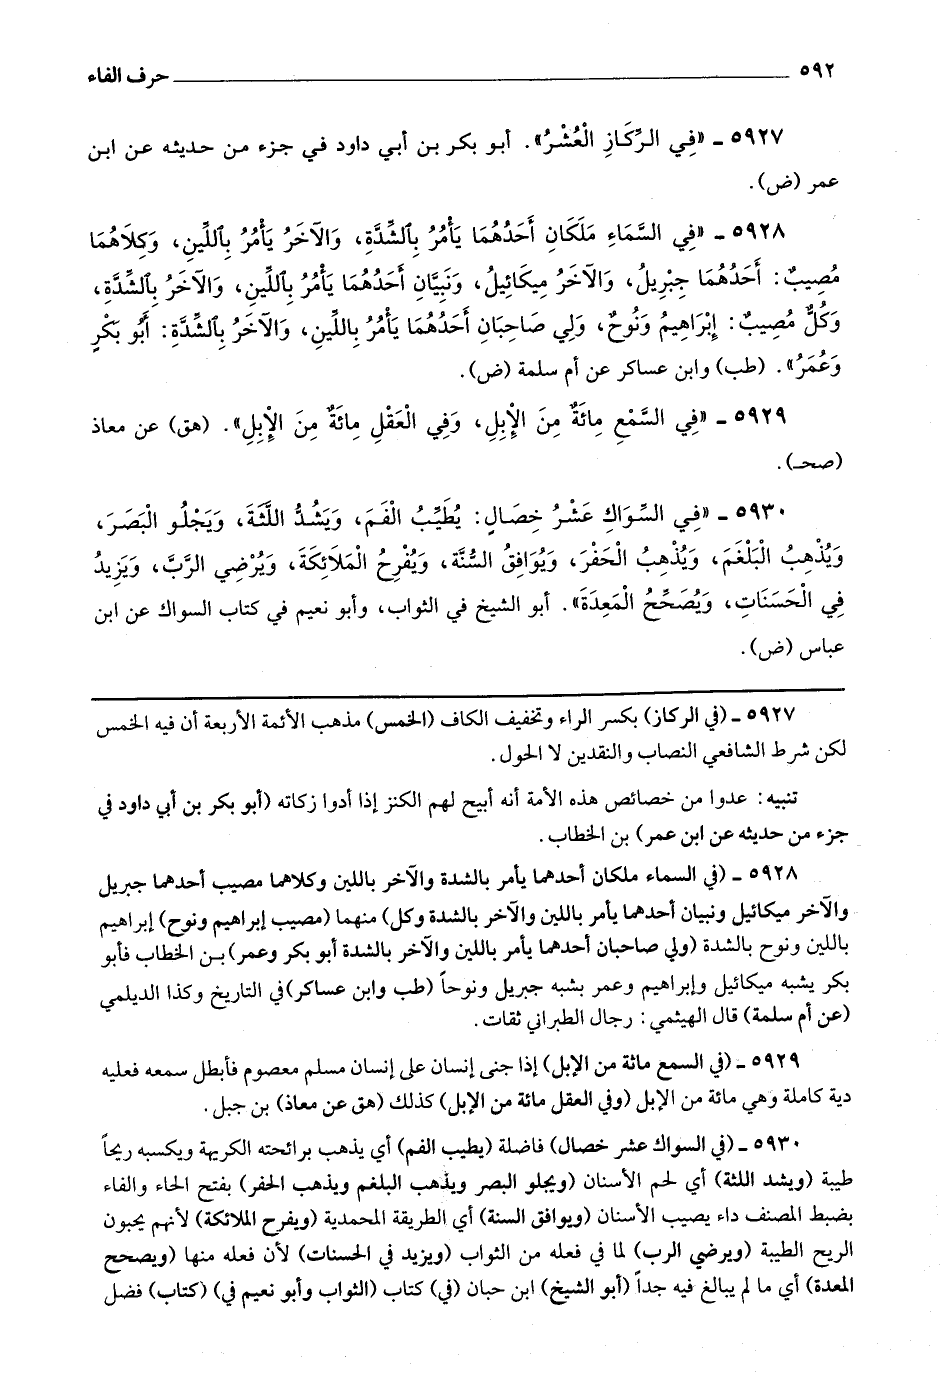 ٥٩٢ حرف الفاء
٥٩٢٧ ـ «فِي الرِّكَازِ الْعُشْرُ». أبو بكر بن أبي داود في جزء من حديثه عن ابن
عمر (ض).
٥٩٢٨ ـ «فِي السَّمَاءِ مَلَكَانِ أَحَدُهُمَا يَأْمُرُ بِالشِّدَّةِ، وَالآخَرُ يَأْمُرُ بِاللِّينِ، وَكِلَاهُمَا
مُصِيبٌ: أَحَدُهُمَا جِبْرِيلُ، وَالآخَرُ مِيكَائِيلُ، وَنَبِيَّانِ أَحَدُهُمَا يَأْمُرُ بِاللِّينِ، وَالآخَرُ بِالشِّدَّةِ،
وَكُلٌّ مُصِيبٌ: إِبْرَاهِيمُ وَنُوحٌ، وَلِي صَاحِبَانِ أَحَدُهُمَا يَأْمُرُ بِاللِّينِ، وَالآخَرُ بِالشِّدَّةِ: أَبُو بَكْرٍ
وَعُمَرُ». (طب) وابن عساكر عن أم سلمة (ض).
٥٩٢٩ ـ «فِي السَّمْعِ مِائَةٌ مِنَ الْإِبِلِ، وَفِي الْعَقْلِ مِائَةٌ مِنَ الْإِبِلِ». (هق) عن معاذ
(صحـ).
٥٩٣٠ ـ «فِي السِّوَاكِ عَشْرُ خِصَالٍ: يُطَيِّبُ الْفَمَ، وَيَشُدُّ اللَّثَةَ، وَيَجْلُو الْبَصَرَ،
وَيُذْهِبُ الْبَلْغَمَ، وَيُذْهِبُ الْحَفْرَ، وَيُوَافِقُ السُّنَّةَ، وَيُفْرِحُ الْمَلَائِكَةَ، وَيُرْضِي الرَّبَّ، وَيَزِيدُ
فِي الْحَسَنَاتِ، وَيُصَحِّحُ الْمَعِدَةَ». أبو الشيخ في الثواب، وأبو نعيم في كتاب السواك عن ابن
عباس (ض).
٥٩٢٧ ـ (في الركاز) بكسر الراء وتخفيف الكاف (الخمس) مذهب الأئمة الأربعة أن فيه الخمس
لكن شرط الشافعي النصاب والنقدين لا الحول.
تنبيه: عدوا من خصائص هذه الأمة أنه أبيح لهم الكنز إذا أدوا زكاته (أبو بكر بن أبي داود في
جزء من حديثه عن ابن عمر) بن الخطاب.
٥٩٢٨ ـ (في السماء ملكان أحدهما يأمر بالشدة والآخر باللين وكلاهما مصيب أحدهما جبريل
والآخر ميكائيل ونبيان أحدهما يأمر باللين والآخر بالشدة وكل) منهما (مصيب إبراهيم ونوح) إبراهيم
باللين ونوح بالشدة (ولي صاحبان أحدهما يأمر باللين والآخر بالشدة أبو بكر وعمر) بن الخطاب فأبو
بكر يشبه ميكائيل وإبراهيم وعمر بشبه جبريل ونوحاً (طب وابن عساكر) في التاريخ وكذا الديلمي
(عن أم سلمة) قال الهيثمي: رجال الطبراني ثقات.
٥٩٢٩ ـ (في السمع مائة من الإبل) إذا جنى إنسان على إنسان مسلم معصوم فأبطل سمعه فعليه
دية كاملة وهي مائة من الإبل (وفي العقل مائة من الإبل) كذلك (هق عن معاذ) بن جبل.
٥٩٣٠ ـ (في السواك عشر خصال) فاضلة (يطيب الفم) أي يذهب برائحته الكريهة ويكسبه ريحاً
طيبة (ويشد اللثة) أي لحم الأسنان (ويجلو البصر ويذهب البلغم ويذهب الحفر) بفتح الحاء والفاء
بضبط المصنف داء يصيب الأسنان (ويوافق السنة) أي الطريقة المحمدية (ويفرح الملائكة) لأنهم يحبون
الريح الطيبة (ويرضي الرب) لما في فعله من الثواب (ويزيد في الحسنات) لأن فعله منها (ويصحح
المعدة) أي ما لم يبالغ فيه جداً (أبو الشيخ) ابن حبان (في) كتاب (الثواب وأبو نعيم في) (كتاب) فضل